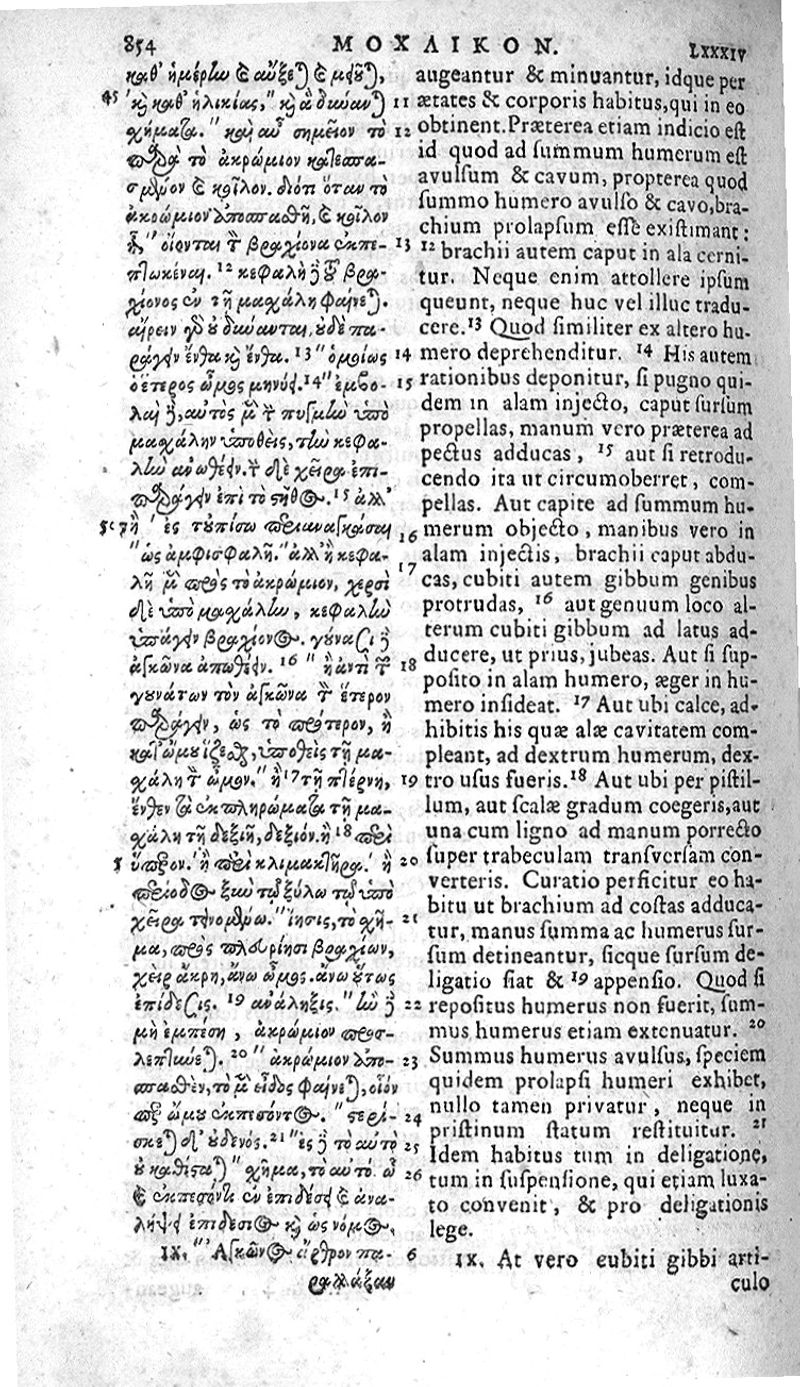 854 ΜΟΧΛΙΚΟΝ. LXXXIV
καθ' ἡμέρην καὶ αὔξεται καὶ μινύθει,
45 καὶ καθ' ἡλικίας, καὶ ἃ δύναται 11
χήματα. καὶ αὖ σημεῖον τὸ 12
παρὰ τὸ ἀκρώμιον κατεσπα-
σμένον καὶ κοῖλον. διότι ὅταν τὸ
ἀκρώμιον ἀποσπασθῇ, καὶ κοῖλον
ᾖ οἴονται τὸν βραχίονα ἐκπε- 13
πτωκέναι. 12 κεφαλὴ δὲ τοῦ βρα-
χίονος ἐν τῇ μασχάλῃ φαίνεται.
αἴρειν γὰρ οὐ δύνανται, οὐδὲ πα-
ράγειν ἔνθα καὶ ἔνθα. 13 ὁμοίως 14
ὁ ἕτερος ὦμος μηνύει. 14 ἐμβο- 15
λαὶ δὲ, αὐτὸς μὲν τὴν πυγμὴν ὑπὸ
μασχάλην ὑποθεὶς, τὴν κεφα-
λὴν ἀνωθεῖν. τὴν δὲ χεῖρα ἐπι-
παράγειν ἐπὶ τὸ στῆθος. 15 ἀλλ'
ἢ ἐς τοὐπίσω περιαναγκάσαι 16
ὡς ἀμφισφαλῇ. ἀλλ' ἢ κεφα-
λῇ μὲν πρὸς τὸ ἀκρώμιον, χερσὶ 17
δὲ ὑπὸ μασχάλην, κεφαλὴν
ὑπάγειν βραχίονος. γούνασι δὲ
ἀγκῶνα ἀπωθεῖν. 16 ἢ ἀντὶ τῶν 18
γουνάτων τὸν ἀγκῶνα τὸν ἕτερον
παράγειν, ὡς τὸ πρότερον, ἢ
κατ' ὤμου ἵζεσθαι, ὑποθεὶς τῇ μα-
χάλῃ τὸν ὦμον. ἢ 17 τῇ πτέρνῃ, 19
ἔνθεν τὰ ἐκπληρώματα τῇ μα-
χάλῃ τῇ δεξιῇ, δεξιόν. ἢ 18 περὶ
ὕπερον. ἢ περὶ κλιμακτῆρα. ἢ 20
περίοδος ξὺν τῷ ξύλῳ τῷ ὑπὸ
χεῖρα τεινομένῳ. ἴησις, τὸ χῆ- 21
μα, πρὸς πλευρῇσι βραχίων,
χεὶρ ἄκρη, ἄνω ὦμος. ἄνω οὕτως
ἐπίδεσις. 19 ἀνάληξις. ἢν δὲ 22
μὴ ἐμπέσῃ, ἀκρώμιον προσ-
λεπτύνεται. 20 ἀκρώμιον ἀπο- 23
σπασθὲν, τὸ μὲν εἶδος φαίνεται, οἷόν
περ ὤμου ἐκπεσόντος. στερί- 24
σκεται δ' οὐδενός. 21 ἐς δὲ τὸ αὐτὸ 25
οὐ καθίσταται χῆμα, τὸ αὐτὸ ᾧ 26
καὶ ἐκπεσόντι ἐν ἐπιδέσει καὶ ἀνα-
λήψει ἐπιδέσιος καὶ ὡς νόμος.
IX. Ἀγκῶνος ἄρθρον πα- 6
ραλλάξαν
augeantur & minuantur, idque per
ætates & corporis habitus, qui in eo
obtinent. Præterea etiam indicio est
id quod ad summum humerum est
avulsum & cavum, propterea quod
summo humero avulso & cavo, bra-
chium prolapsum esse existimant:
12 brachii autem caput in ala cerni-
tur. Neque enim attollere ipsum
queunt, neque huc vel illuc tradu-
cere. 13 Quod similiter ex altero hu-
mero deprehenditur. 14 His autem
rationibus deponitur, si pugno qui-
dem in alam injecto, caput sursum
propellas, manum vero præterea ad
pectus adducas, 15 aut si retrodu-
cendo ita ut circumoberret, com-
pellas. Aut capite ad summum hu-
merum objecto, manibus vero in
alam injectis, brachii caput abdu-
cas, cubiti autem gibbum genibus
protrudas, 16 aut genuum loco al-
terum cubiti gibbum ad latus ad-
ducere, ut prius, jubeas. Aut si sup-
posito in alam humero, æger in hu-
mero insideat. 17 Aut ubi calce, ad-
hibitis his quæ alæ cavitatem com-
pleant, ad dextrum humerum, dex-
tro usus fueris. 18 Aut ubi per pistil-
lum, aut scalæ gradum coegeris, aut
una cum ligno ad manum porrecto
super trabeculam transversam con-
verteris. Curatio perficitur eo ha-
bitu ut brachium ad costas adduca-
tur, manus summa ac humerus sur-
sum detineantur, sicque sursum de-
ligatio fiat & 19 appensio. Quod si
repositus humerus non fuerit, sum-
mus humerus etiam extenuatur. 20
Summus humerus avulsus, speciem
quidem prolapsi humeri exhibet,
nullo tamen privatur, neque in
pristinum statum restituitur. 21
Idem habitus tum in deligatione,
tum in suspensione, qui etiam luxa-
to convenit, & pro deligationis
lege.
IX. At vero cubiti gibbi arti-
culo